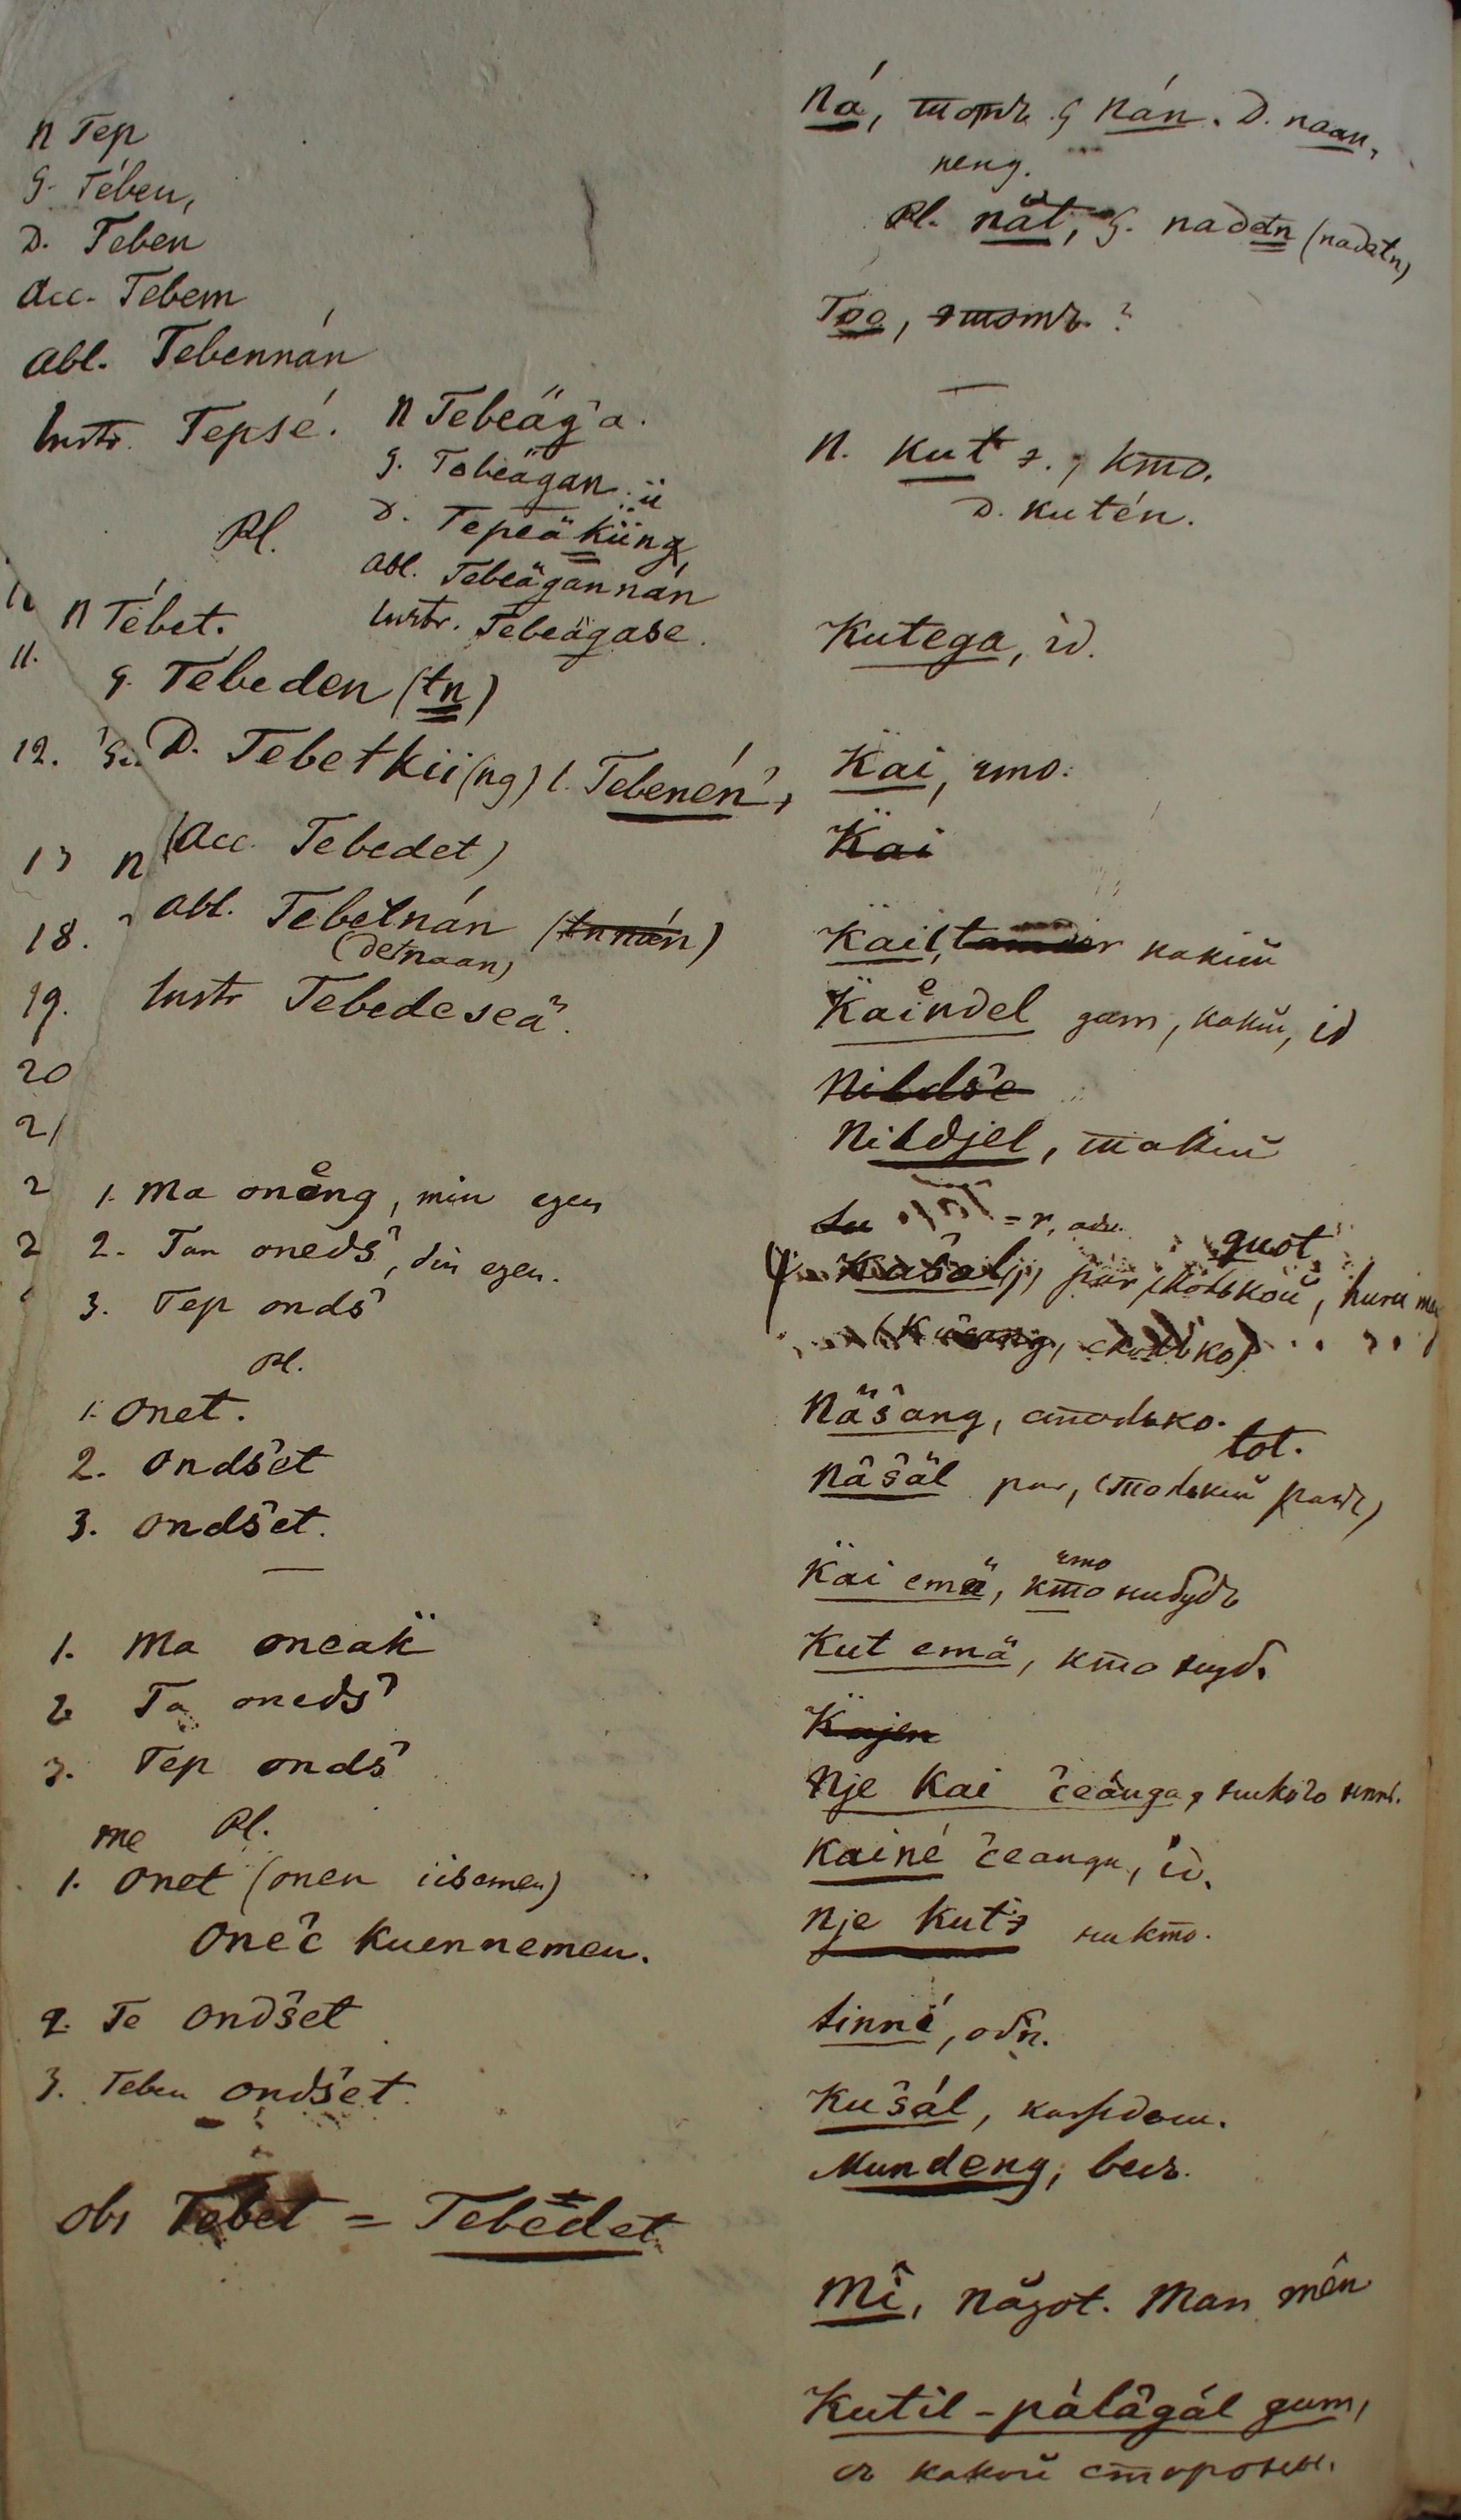 N Tep
G. Tében,
D. Teben
Acc. Tebem
Abl. Tebennán
Instr. Tepsé.
N Tebeäg'a.
G. Tebeägan
D. Tepeäküng,
Abl. Tebeägannán
Instr. Tebeägase.
Pl.
N Tébet.
11.
G. Tebeden (tn)
12. D. Tebetkii(ng) l. Tebenén,
(Acc. Tebedet)
18. Abl. Tebetnán (tnnán)
(detnaan)
19. Instr Tebedeseä.
20
21
1. Ma oneng, min egen
2. Tan oneds̑, din egen.
3. Tep onds̑
Pl.
1. Onet.
2. Onds̑et
3. Onds̑et.
1. Ma oneäk
2 Ta oneds̑
3. Tep onds̑
Pl.
me
1. Onet (onen iisemen)
Onec̑ kuennemen.
2. Te onds̑et
3. Teben onds̑et.
obs Tebet = Tebedet
Ná, тотъ. G Nán. D. naan,
neng.
Pl. nät, G. nadetn (nadetn)
Too, этотъ. ?
N. Kut, кто.
D. kutén.
Kutega, id.
Käi, что.
Käi
Käil, какiй
Käindel gam, какiй, id
Nildse
Nildjel, такiй
= r, adv.
quot
Näs̑ang, столько.
tot.
Näs̑äl par, (столькiй разъ)
что
Käi emä, кто нибудь
Kut emä, кто нибуд.
Kajen
Nje Kai c̑eänga, никого
Kainé c̑eanga, id.
Nje Kut никто.
Sinné,
Kus̑ál, каждый.
Mundeng, весь.
Mî, något. Man mên
Kutil-pálägál gum,
съ какой стороны.